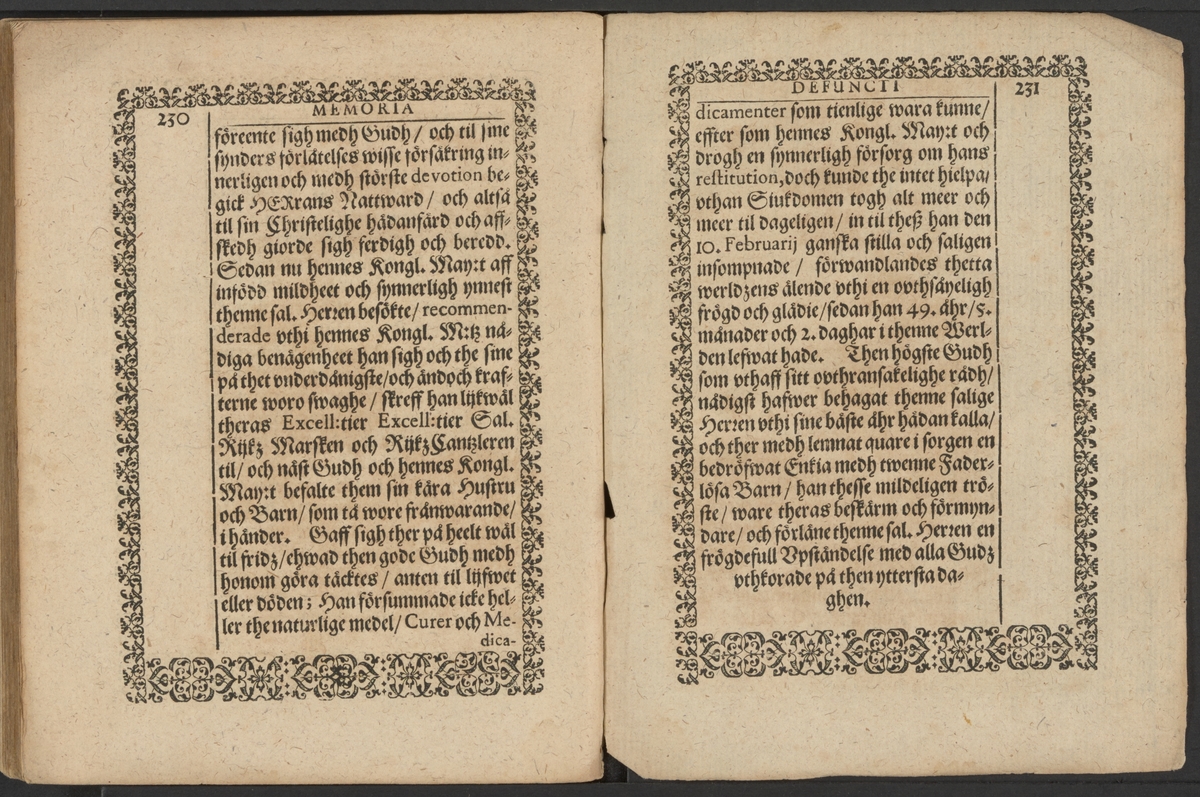 MEMORIA
230
föreente sigh medh Gudh / och til sine
synders förlåtelses wisse försäkring in-
nerligen och medh störste devotion be-
gick HERrans Nattward / och altså
til sin Christelighe hädanfärd och aff-
skedh giorde sigh ferdigh och beredd.
Sedan nu hennes Kongl. May:t aff
infödd mildheet och synnerligh ynnest
thenne sal. Herren besökte / recommen-
derade vthi hennes Kongl. M:tz nå-
diga benägenheet han sigh och the sine
på thet vnderdånigste/och ändoch kraf-
terne woro swaghe / skreff han lijkwäl
theras Excell:tier Excell:tier Sal.
Rijkz Marsken och RijkzCantzleren
til/ och näst Gudh och hennes Kongl.
May:t befalte them sin kära Hustru
och Barn/ som tå wore frånwarande/
i händer. Gaff sigh ther på heelt wäl
til fridz/ehwad then gode Gudh medh
honom göra täcktes / anten til lijfwet
eller döden; Han försummade icke hel-
ler the naturlige medel/ Curer och Me-
dica-
DEFUNCTI
231
dicamenter som tienlige wara kunne/
effter som hennes Kongl. May:t och
drogh en synnerligh försorg om hans
restitution, doch kunde the intet hielpa/
vthan Siukdomen togh alt meer och
meer til dageligen / in til theß han den
10. Februarij ganska stilla och saligen
insompnade / förwandlandes thetta
werldzens älende vthi en outhsäyeligh
frögd och glädie/sedan han 49. åhr/ 5.
månader och 2. daghar i thenne Werl-
den lefwat hade. Then högste Gudh
som vthaff sitt outhransakelighe rådh/
nådigst hafwer behagat thenne salige
Herren vthi sine bäste åhr hädan kalla/
och ther medh lemnat quare i sorgen en
bedröfwat Enkia medh twenne Fader-
lösa Barn / han thesse mildeligen trö-
ste / ware theras beskärm och förmyn-
dare / och förläne thenne sal. Herren en
frögdefull Vpståndelse med alla Gudz
vthkorade på then yttersta da-
ghen.